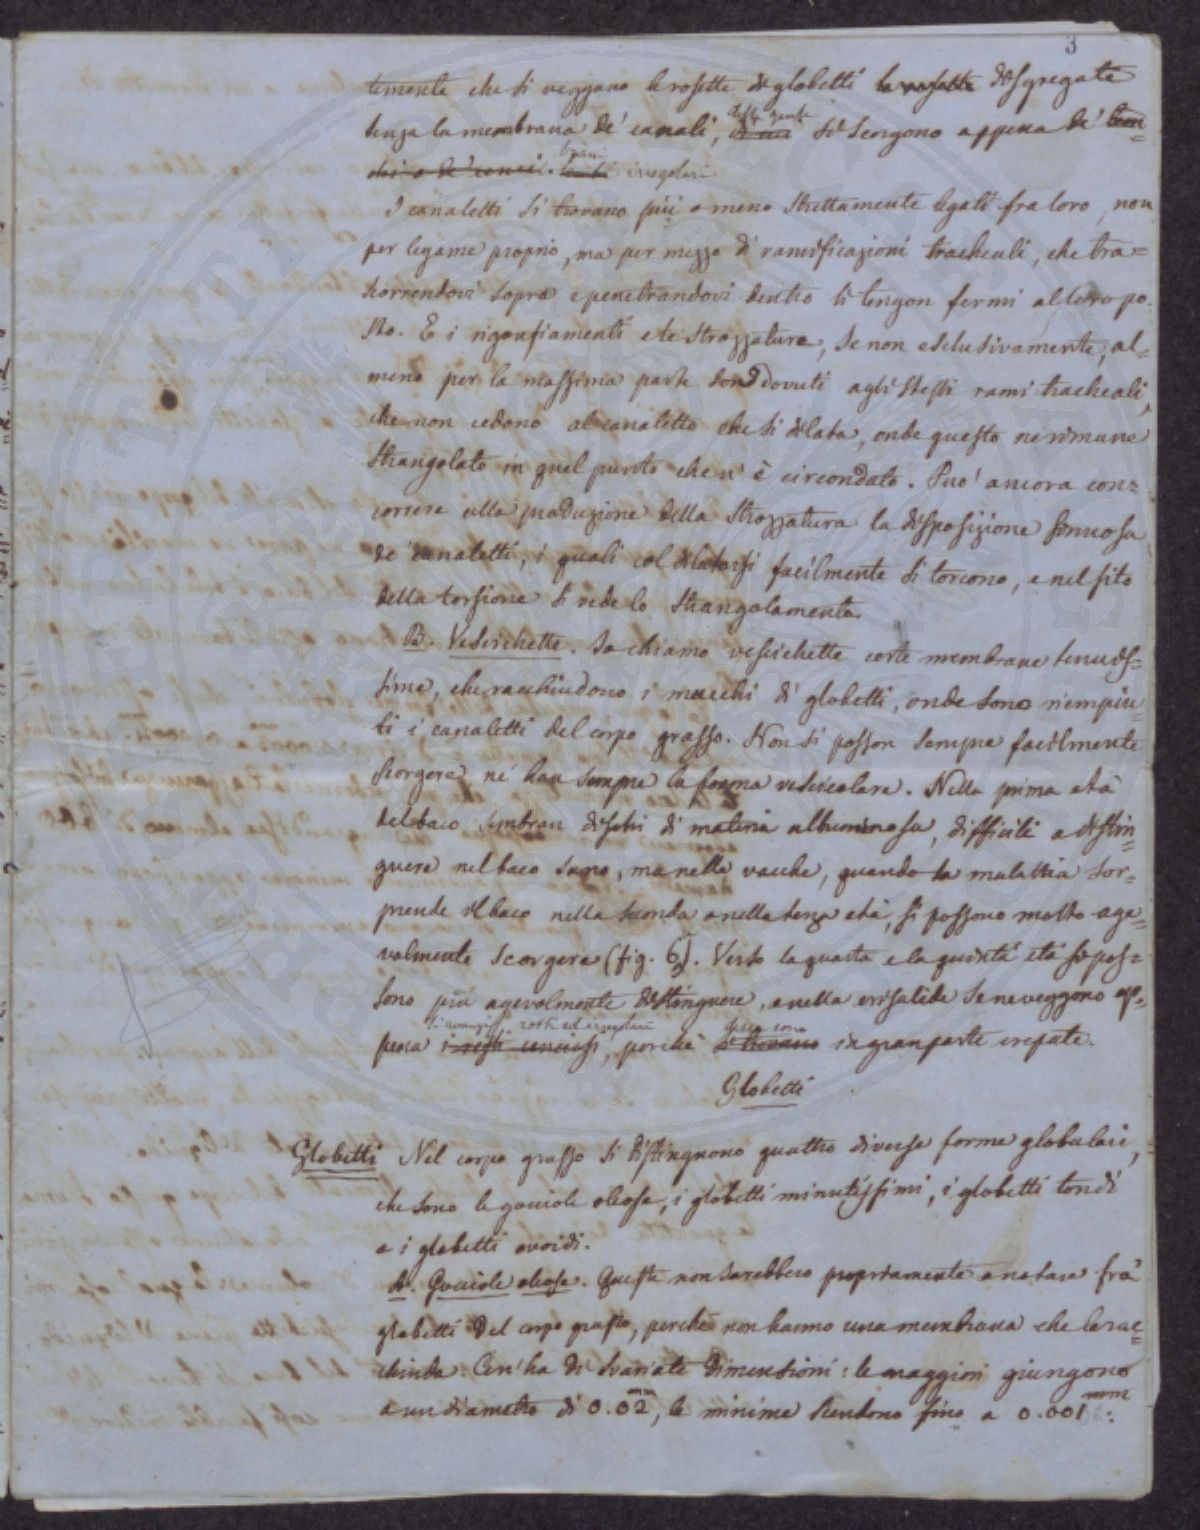 3
temente che si veggano le rosette di globetti le rosette disgregate
senza la membrana de' canali, della quale si scorgono appena de' bran=
chi o de' cenci. brani irregolari
I canaletti si trovano più o meno strettamente legati fra loro, non
per legame proprio, ma per mezzo di ramificazioni tracheali, che tra=
scorrendovi sopra e penetrandovi dentro li tengon fermi al loro po=
sto. E i rigonfiamenti e le strozzature, se non esclusivamente, al=
meno per la massima parte son dovuti agli stessi rami tracheali,
che non cedono al canaletto che si dilata, onde questo ne rimane
strangolato in quel punto che n' è circondato. Puo' ancora con=
correre alla produzione della strozzatura la disposizione sinuosa
de' canaletti, i quali col dilatarsi facilmente si torcono, e nel sito
della torsione si vede lo strangolamento.
B. Vescichette. Io chiamo vescichette certe membrane tenuis=
sime, che racchiudono i mucchi di globetti, onde sono riempiu=
ti i canaletti del corpo grasso. Non si posson sempre facilmente
scorgere né han sempre la forma vescicolare. Nella prima età
del baco sembran dischi di materia albuminosa, difficili a distin=
guere nel baco sano, ma nelle vacche, quando la malattia sor=
prende il baco nella seconda o nella terza età, si possono molto age=
volmente scorgere (fig. 6). Verso la quarta e la quinta età si pos=
sono più agevolmente distinguere, e nella crisalide se ne veggono ap=
pena i resti cenciosi, rotti ed irregolari perchè si trovano esse sono in gran parte crepate.
Globetti
Globetti Nel corpo grasso si distinguono quattro diverse forme globulari,
che sono le gocciole oleose, i globetti minutissimi, i globetti tondi
e i globetti ovoidi.
A. Gocciole oleose. Queste non sarebbero propriamente a notare frà
globetti del corpo grasso, perchè non hanno una membrana che le rac=
chiuda. Cen'ha di svariate dimensioni: le maggiori giungono
a un diametro di 0.02 mm, le minime scendono fino a 0.001 mm: